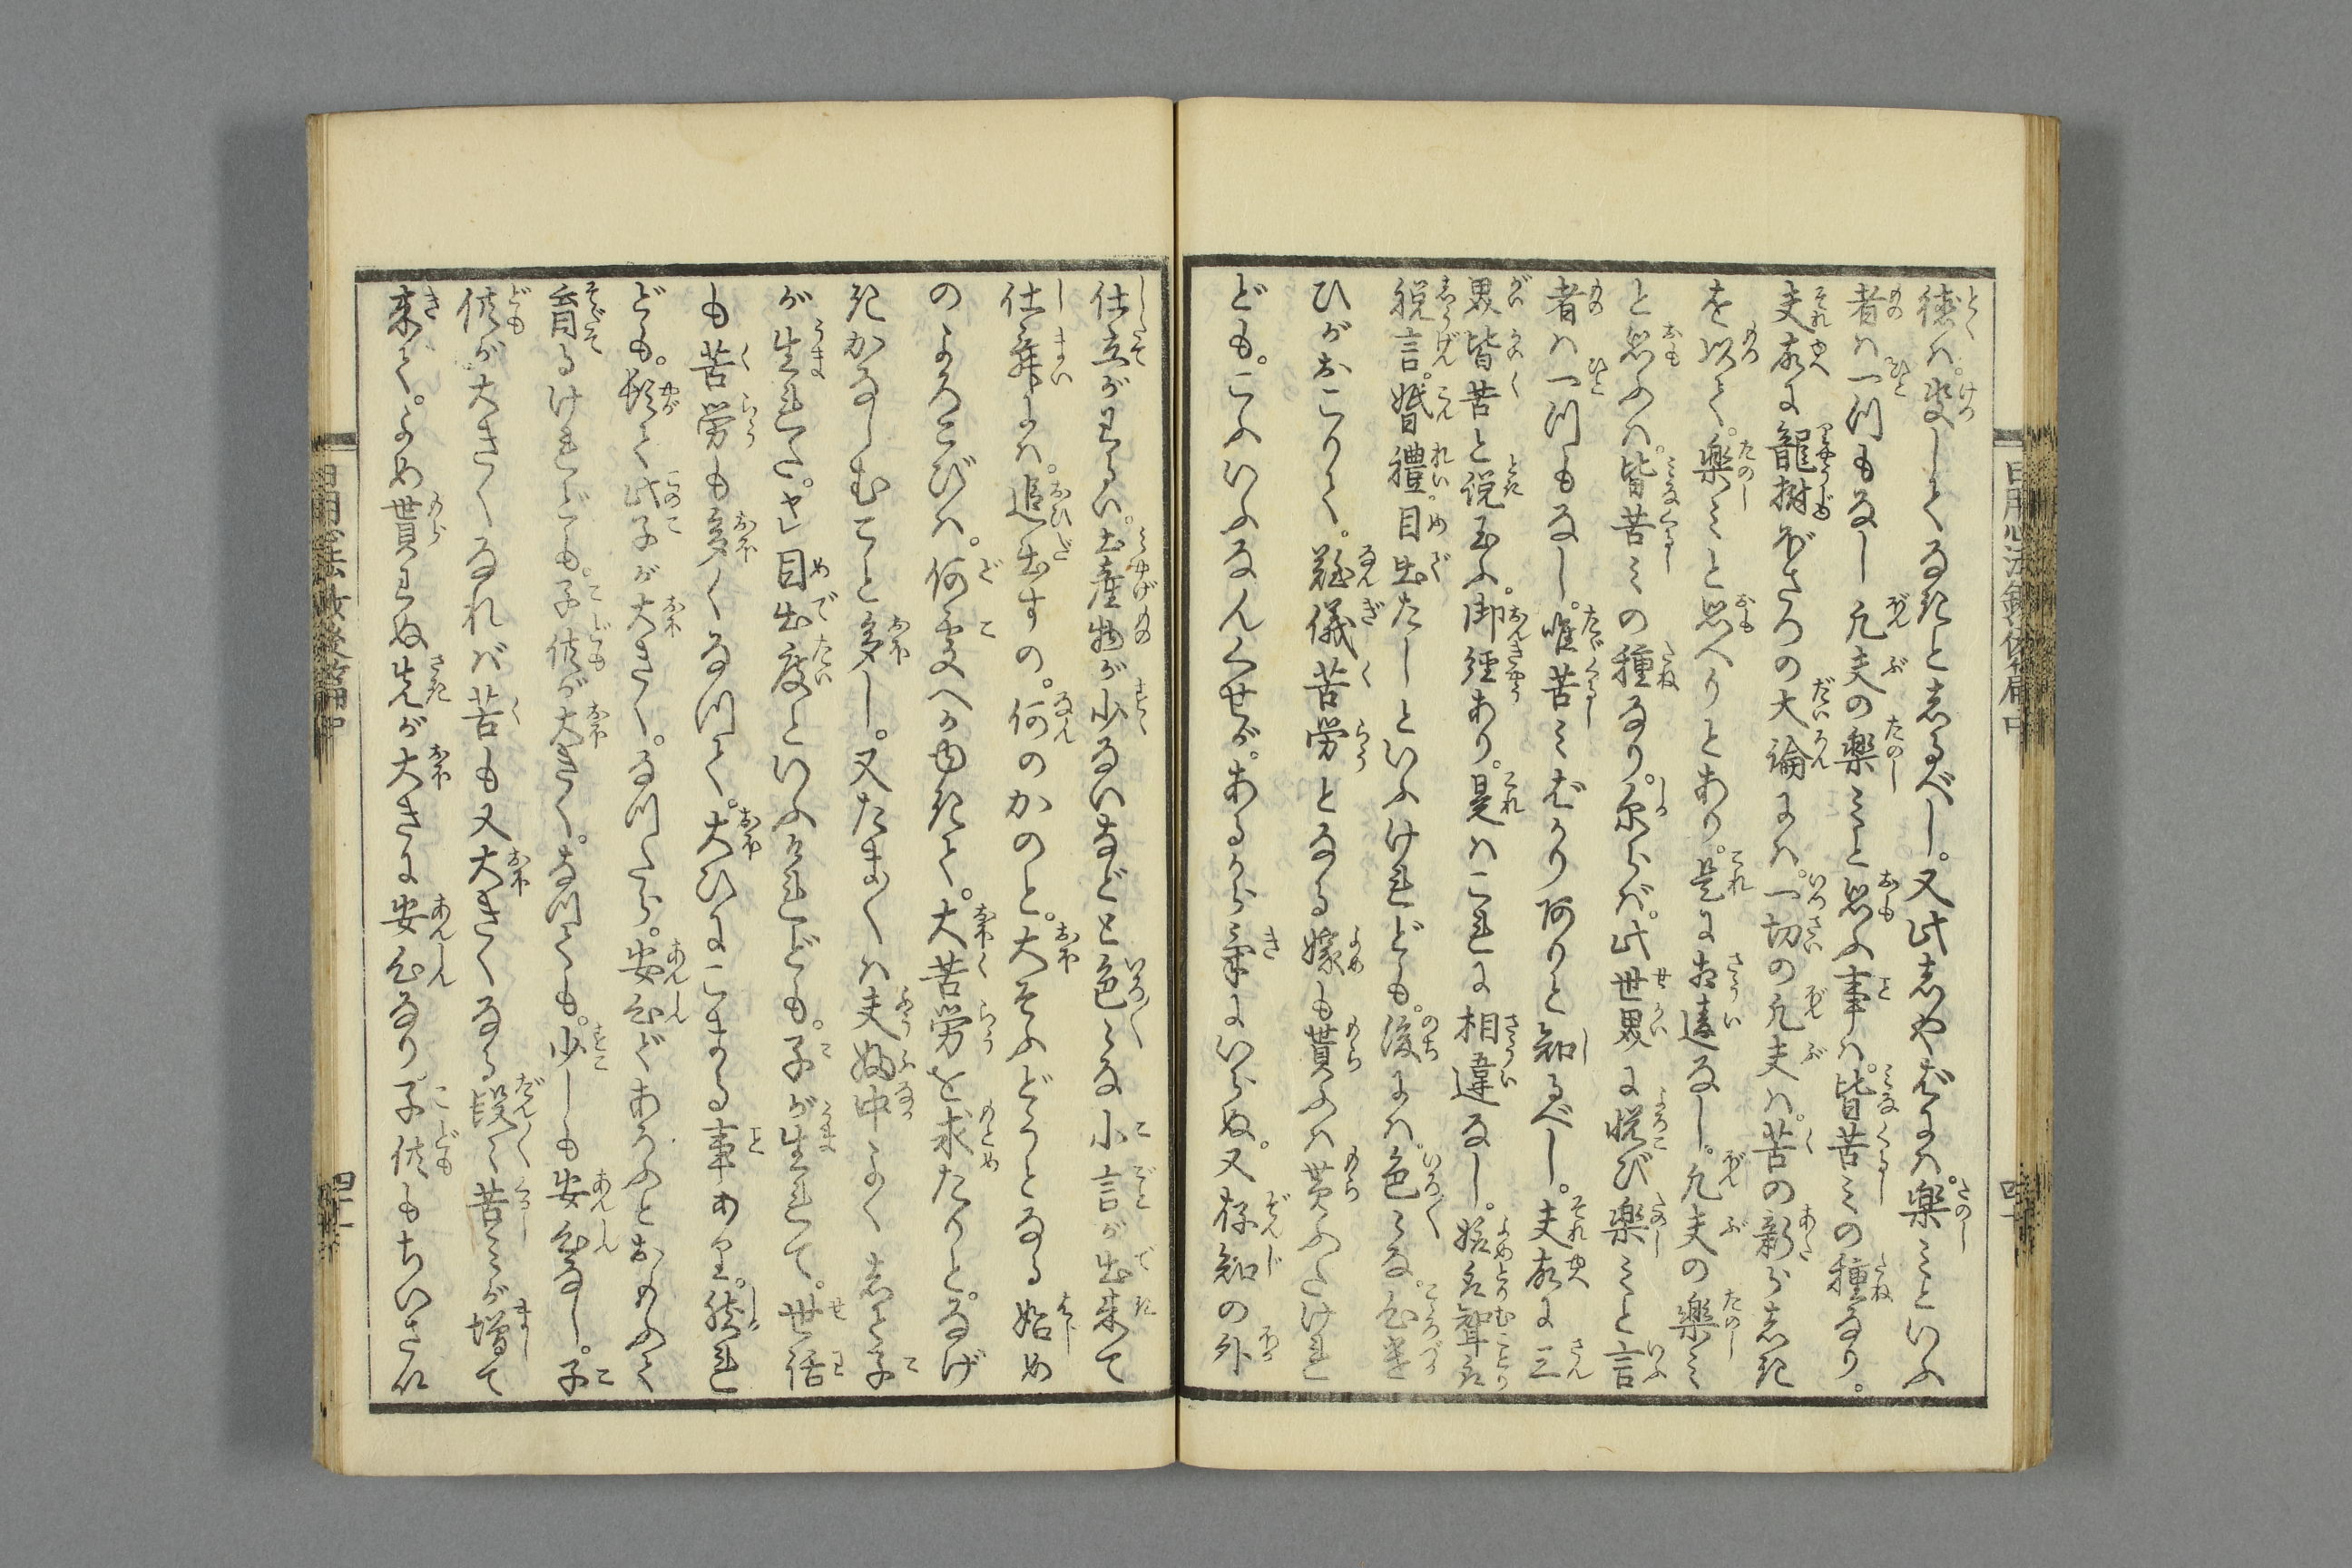 徳ハ。決しとくなきと志るべし。又此志やばにハ。楽ミといふ
者ハ一つもなし凡夫の楽ミと思ふ事ハ。皆苦ミの種なり。
夫故に龍樹ぼさつの大論にハ。一切の凡夫ハ。苦の新らしき
を以て。楽ミと思へりとあり。是に相違なし。凡夫の楽ミ
と思ふハ。皆苦ミの種なり。尓らバ。此世界に悦び楽ミと言
者ハ一つもなし。唯苦ミばかりありと知るべし。夫故に三
界皆苦と説玉ふ。御経あり。是ハこれに相違なし。嫁取聟取
祝言。婚禮。目出たしといふけれども。後にハ。色々な。心遣
ひがおこりて。難儀苦労となる嫁も貰ふハ貰ふたけれ
ども。こふいふなんくせが。あるから気にいらぬ。又存知の外
仕立がわるい。土産物が少ないなどと色々な小言が出来て
仕舞にハ。追出すの。何のかのと。大そふどうとなる始め
のよろこびハ。何處へかゆきて。大苦労を求たりと。なげ
きかなしむこと多し。又たま〱ハ夫婦中よく志て子
が生れた。サレ目出度といふけれども。子が生れて。世話
も苦労も多くなつて。大ひにこまる事あり。然れ
ども。頓て此子が大きく。なつたら。安心であろふとおもふて
育るけれども。子供が大きく。なつても。少しも安心なし。子
供が大きくなれバ苦も又大きくなる段々苦ミが増て
来て。よめ貰わぬ先が大きに安心なり子供もちいさい
日用心法鈔後篇中
四十一